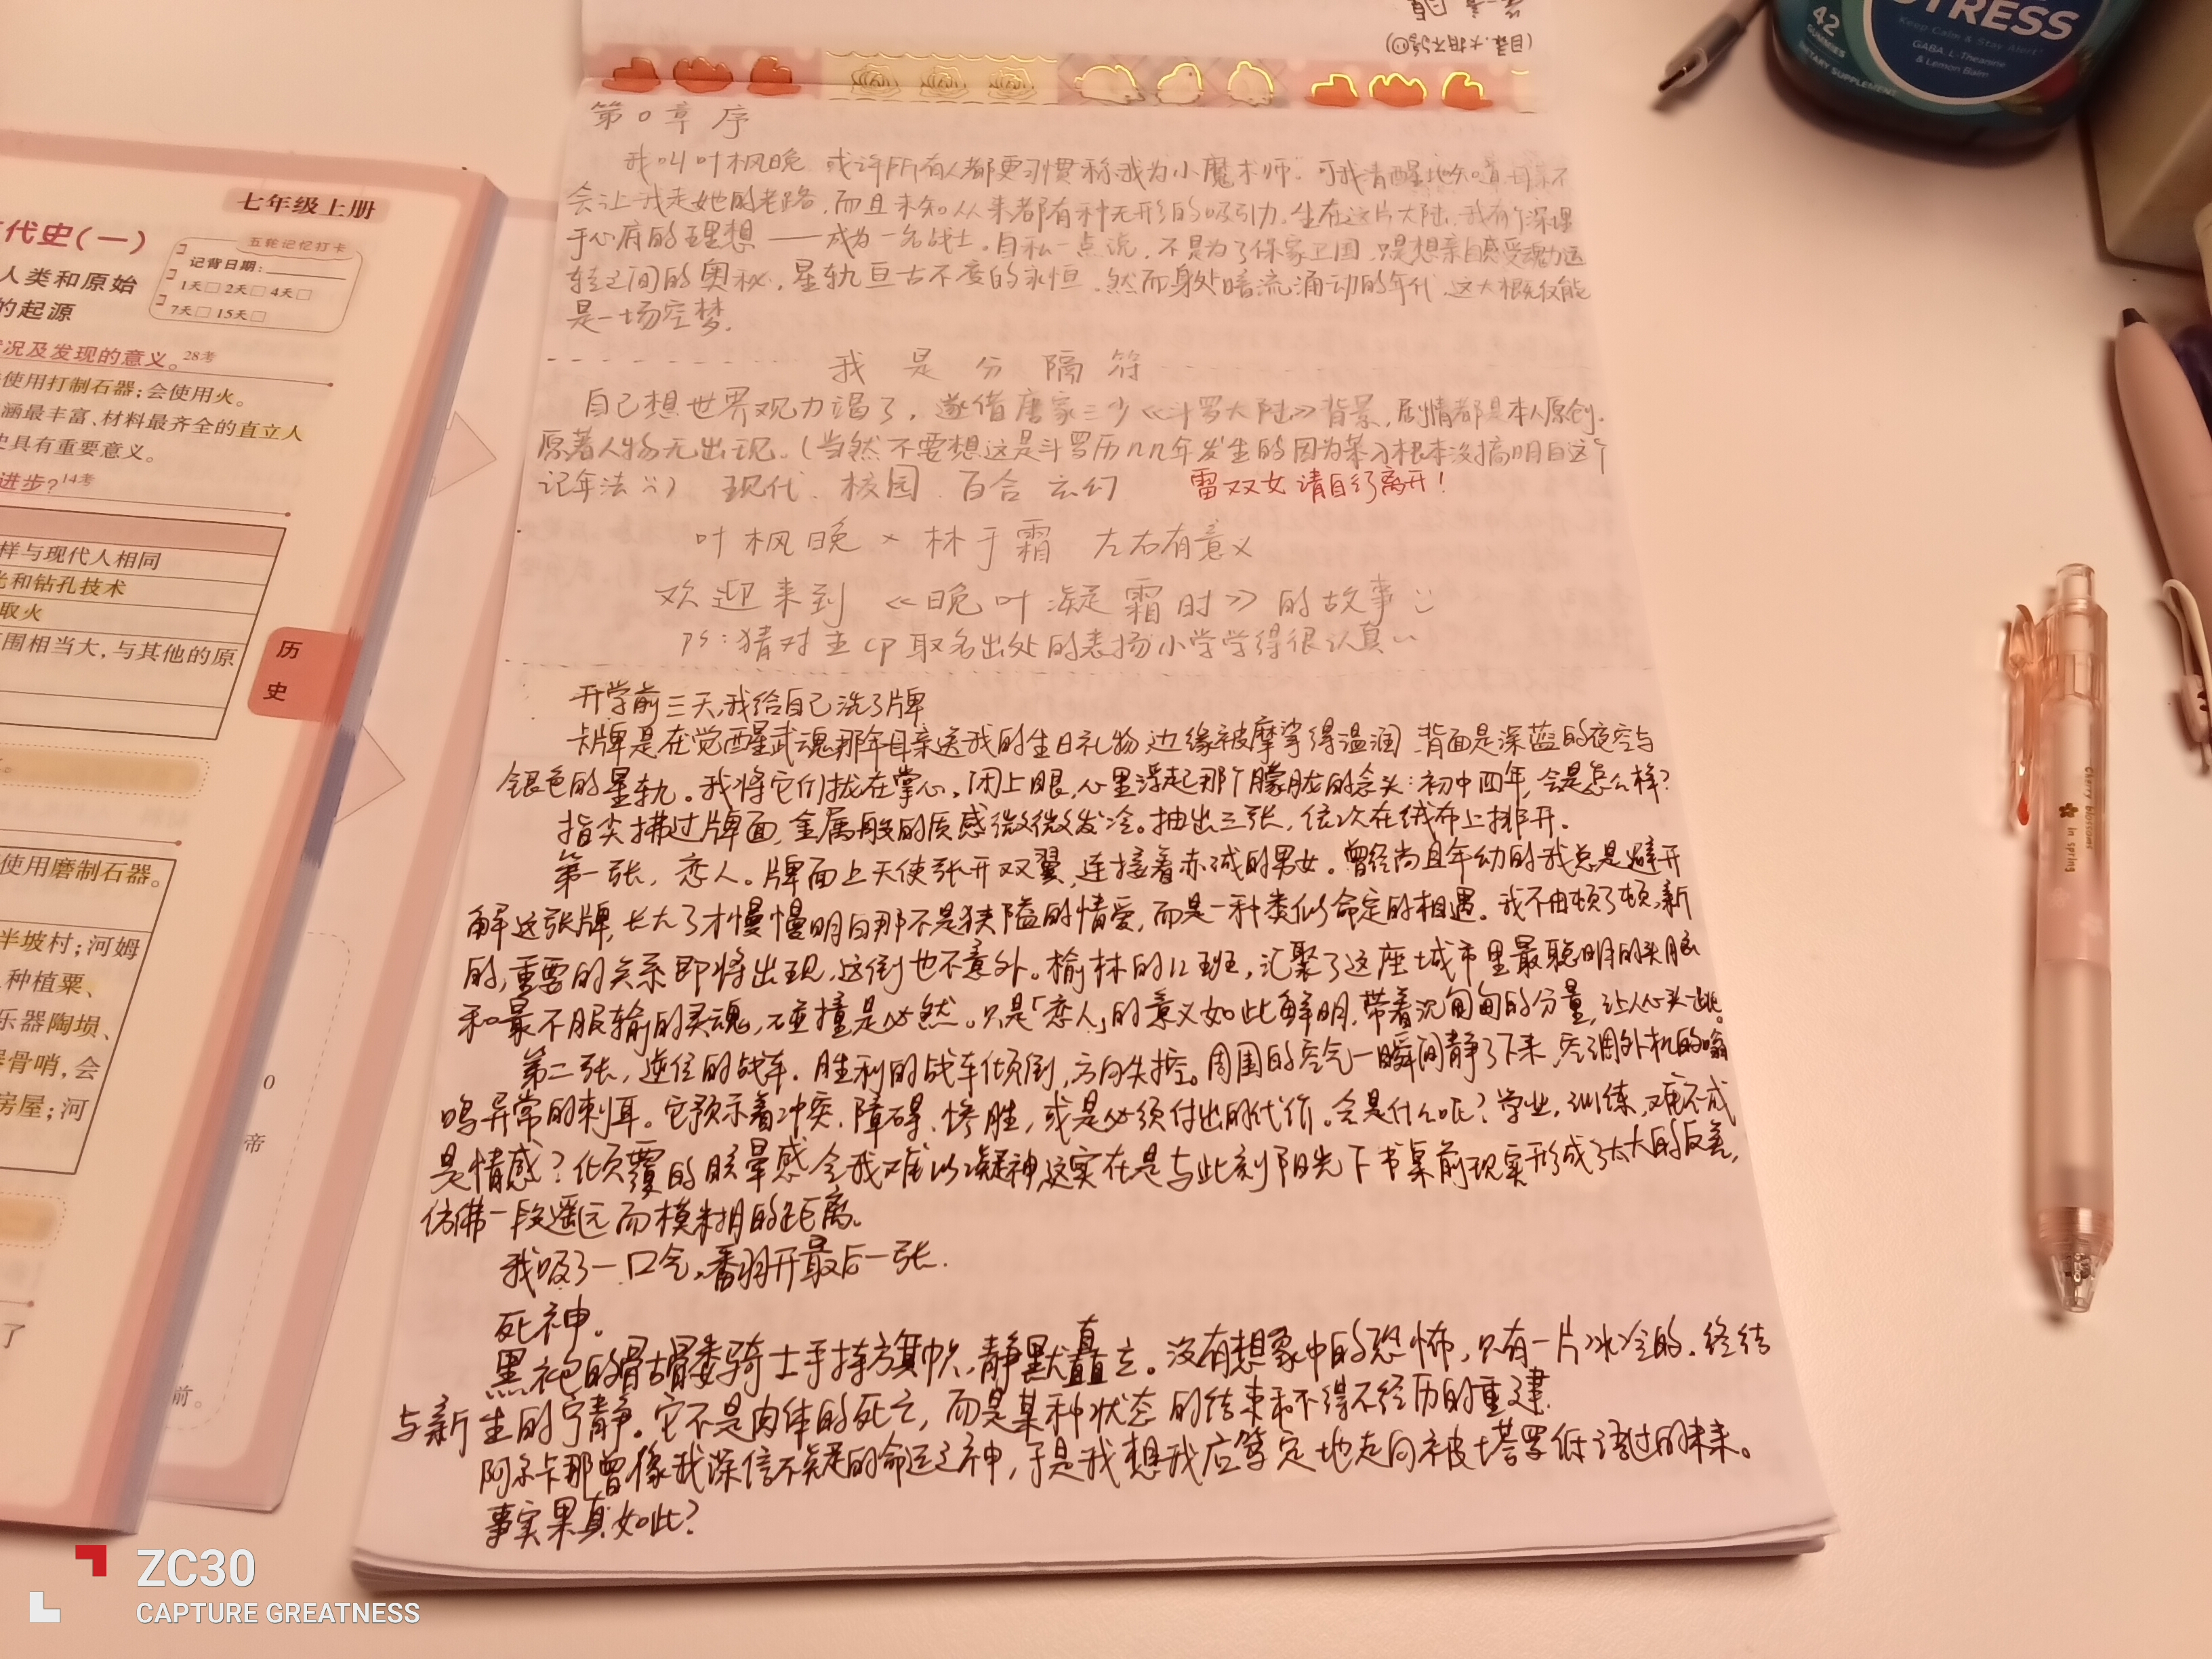 STRESS
Keep Calm & Stay Alert
42
GUMMIES
DIETARY SUPPLEMENT
GABA, L-Theanine
& Lemon Balm
七年级上册
代史(一)
五轮记忆打卡
记背日期:
1天□ 2天□ 4天□
7天□ 15天□
人类和原始
的起源
况及发现的意义。28考
使用打制石器;会使用火。
涵最丰富、材料最齐全的直立人
史具有重要意义。
进步?14考
样与现代人相同
光和钻孔技术
取火
围相当大,与其他的原
历
史
使用磨制石器。
半坡村;河姆
种植粟、
乐器陶埙、
骨哨,会
房屋;河
了
0
帝
前。
第0章 序
我叫叶枫晚 或许所有人都更习惯称我为小魔术师.可我清醒地知道母亲不
会让我走她的老路,而且未知从来都有种无形的吸引力.生在这片大陆,我有个深埋
于心底的理想——成为一名战士。自私一点说,不是为了保家卫国,只是想亲自感受魂力运
转之间的奥秘,星轨亘古不变的永恒.然而身处暗流涌动的年代,这大概仅能
是一场空梦.
我是分隔符
自己想世界观力竭了,遂借唐家三少《斗罗大陆》背景,剧情都是本人原创.
原著人物无出现.(当然不要想这是斗罗历几几年发生的因为某人根本没搞明白这个
记年法) 现代、校园、百合 玄幻 雷双女请自行离开!
叶枫晚×林于霜 左右有意义
欢迎来到《晚叶凝霜时》的故事
ps:猜对主cp取名出处的表扬小学学得很认真
开学前三天,我给自己洗了牌
卡牌是在觉醒武魂那年母亲送我的生日礼物 边缘被摩挲得温润,背面是深蓝的夜空与
银色的星轨。我将它们拢在掌心,闭上眼,心里浮起那个朦胧的念头:初中四年,会是怎么样?
指尖拂过牌面,金属般的质感微微发冷。抽出三张,依次在绒布上排开.
第一张,恋人。牌面上天使张开双翼,连接着赤诚的男女。曾经尚且年幼的我总是避开
解这张牌,长大了才慢慢明白那不是狭隘的情爱,而是一种类似命定的相遇。我不由顿了顿,新
的,重要的关系即将出现,这倒也不意外。榆林的12班,汇聚了这座城市里最聪明的头脑
和最不服输的灵魂,碰撞是必然。只是「恋人」的意义如此鲜明,带着沉甸甸的分量,让人心头一跳。
第二张,逆位的战车.胜利的战车倾倒,方向失控。周围的空气一瞬间静了下来,空调外机的嗡
鸣异常的刺耳。它预示着冲突、障碍、惨胜,或是必须付出的代价。会是什么呢?学业,训练,难不成
是情感?倾覆的眩晕感令我难以凝神,这实在是与此刻阳光下书桌前现实形成了太大的反差,
仿佛一段遥远而模糊的距离。
我吸了一口气,翻开最后一张.
死神。
黑袍的骷髅骑士手持旗帜,静默直立。没有想象中的恐怖,只有一片冰冷的.终结
与新生的宁静。它不是肉体的死亡,而是某种状态的结束和不得不经历的重建.
阿尔卡那曾像我深信不疑的命运之神,于是我想我应笃定地走向被塔罗低语过的未来。
事实果真如此?
Cherry blossoms
in spring
ZC30
CAPTURE GREATNESS